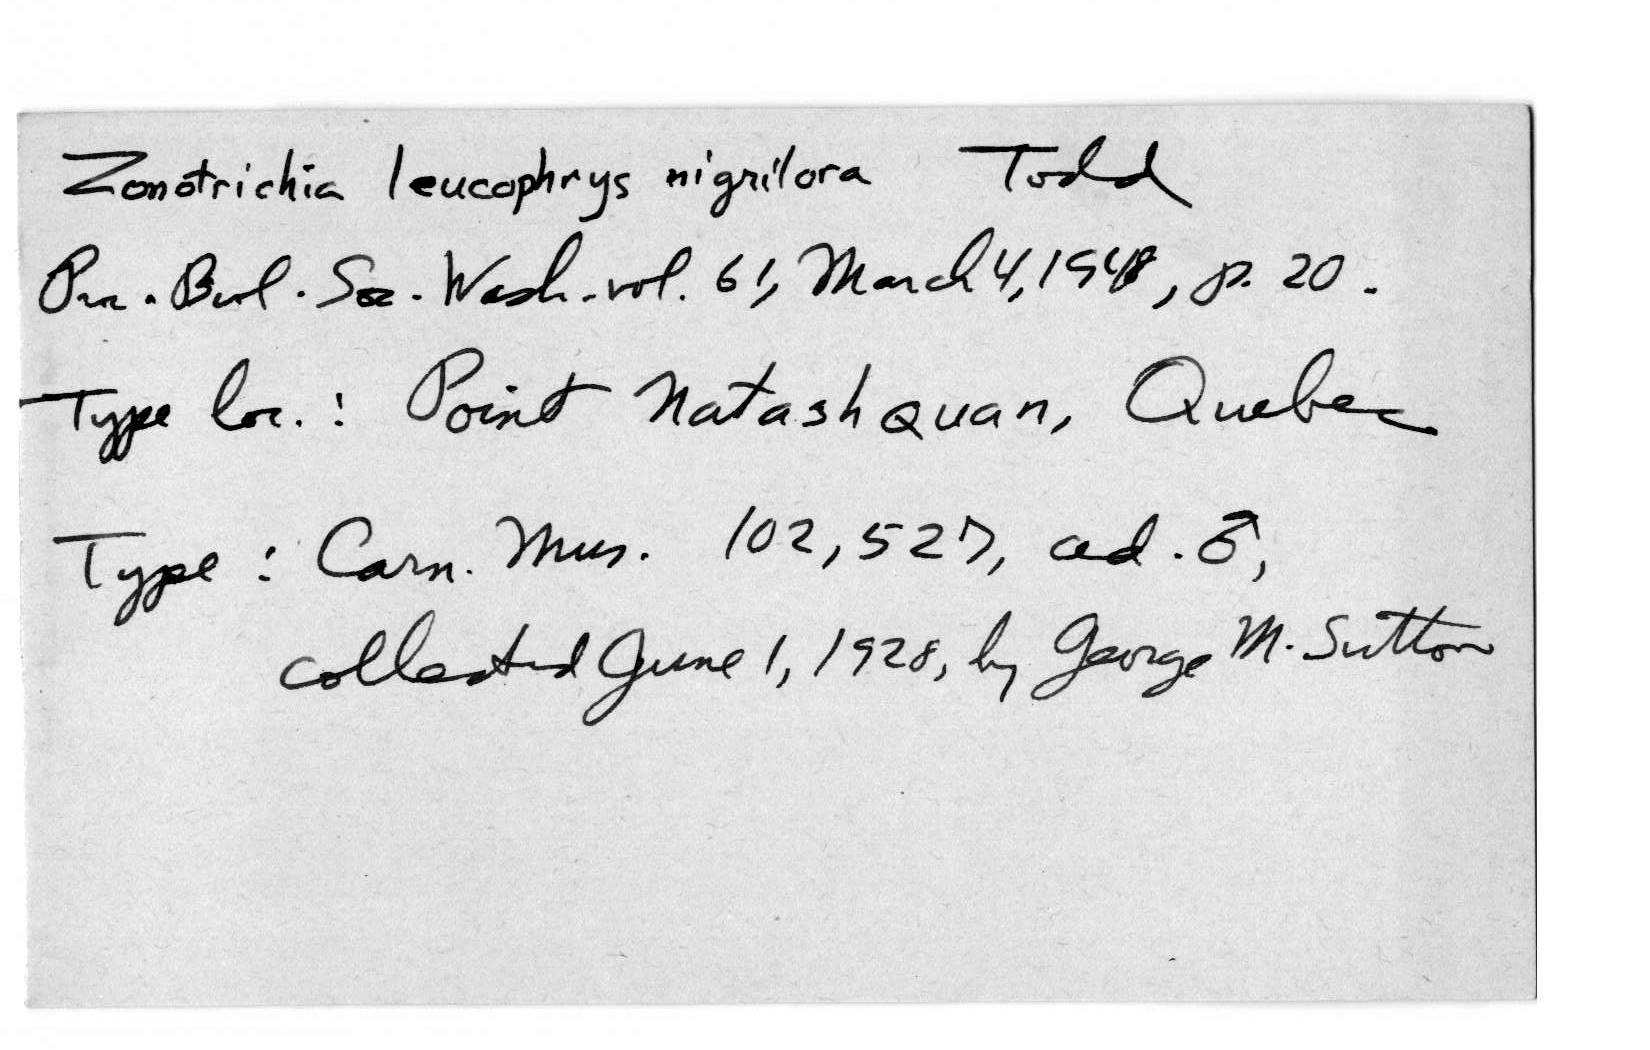 Zonotrichia leucophrys nigrilora Todd
Proc. Biol. Soc. Wash. vol. 61, March 4, 1948, p. 20.
Type loc.: Point Natashquan, Quebec
Type: Carn. Mus. 102,527, ad. ♂,
collected June 1, 1928, by George M. Sutton